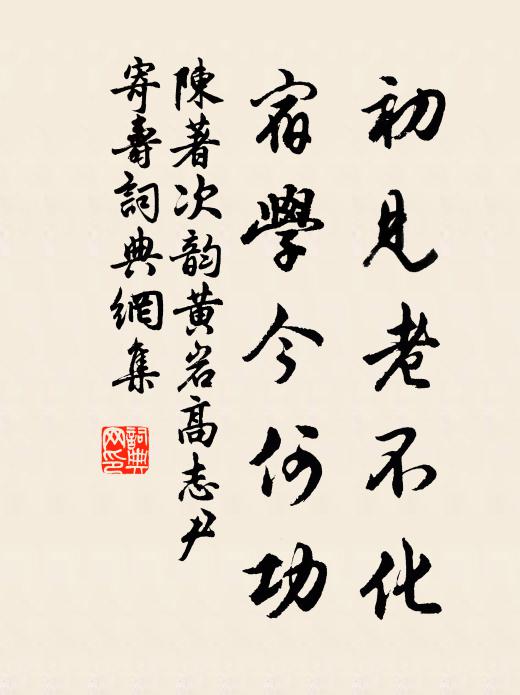 初見老不化
宿學今何功
陳著次韵黄岩高志尹
寄壽詞典網集
詞典
网印